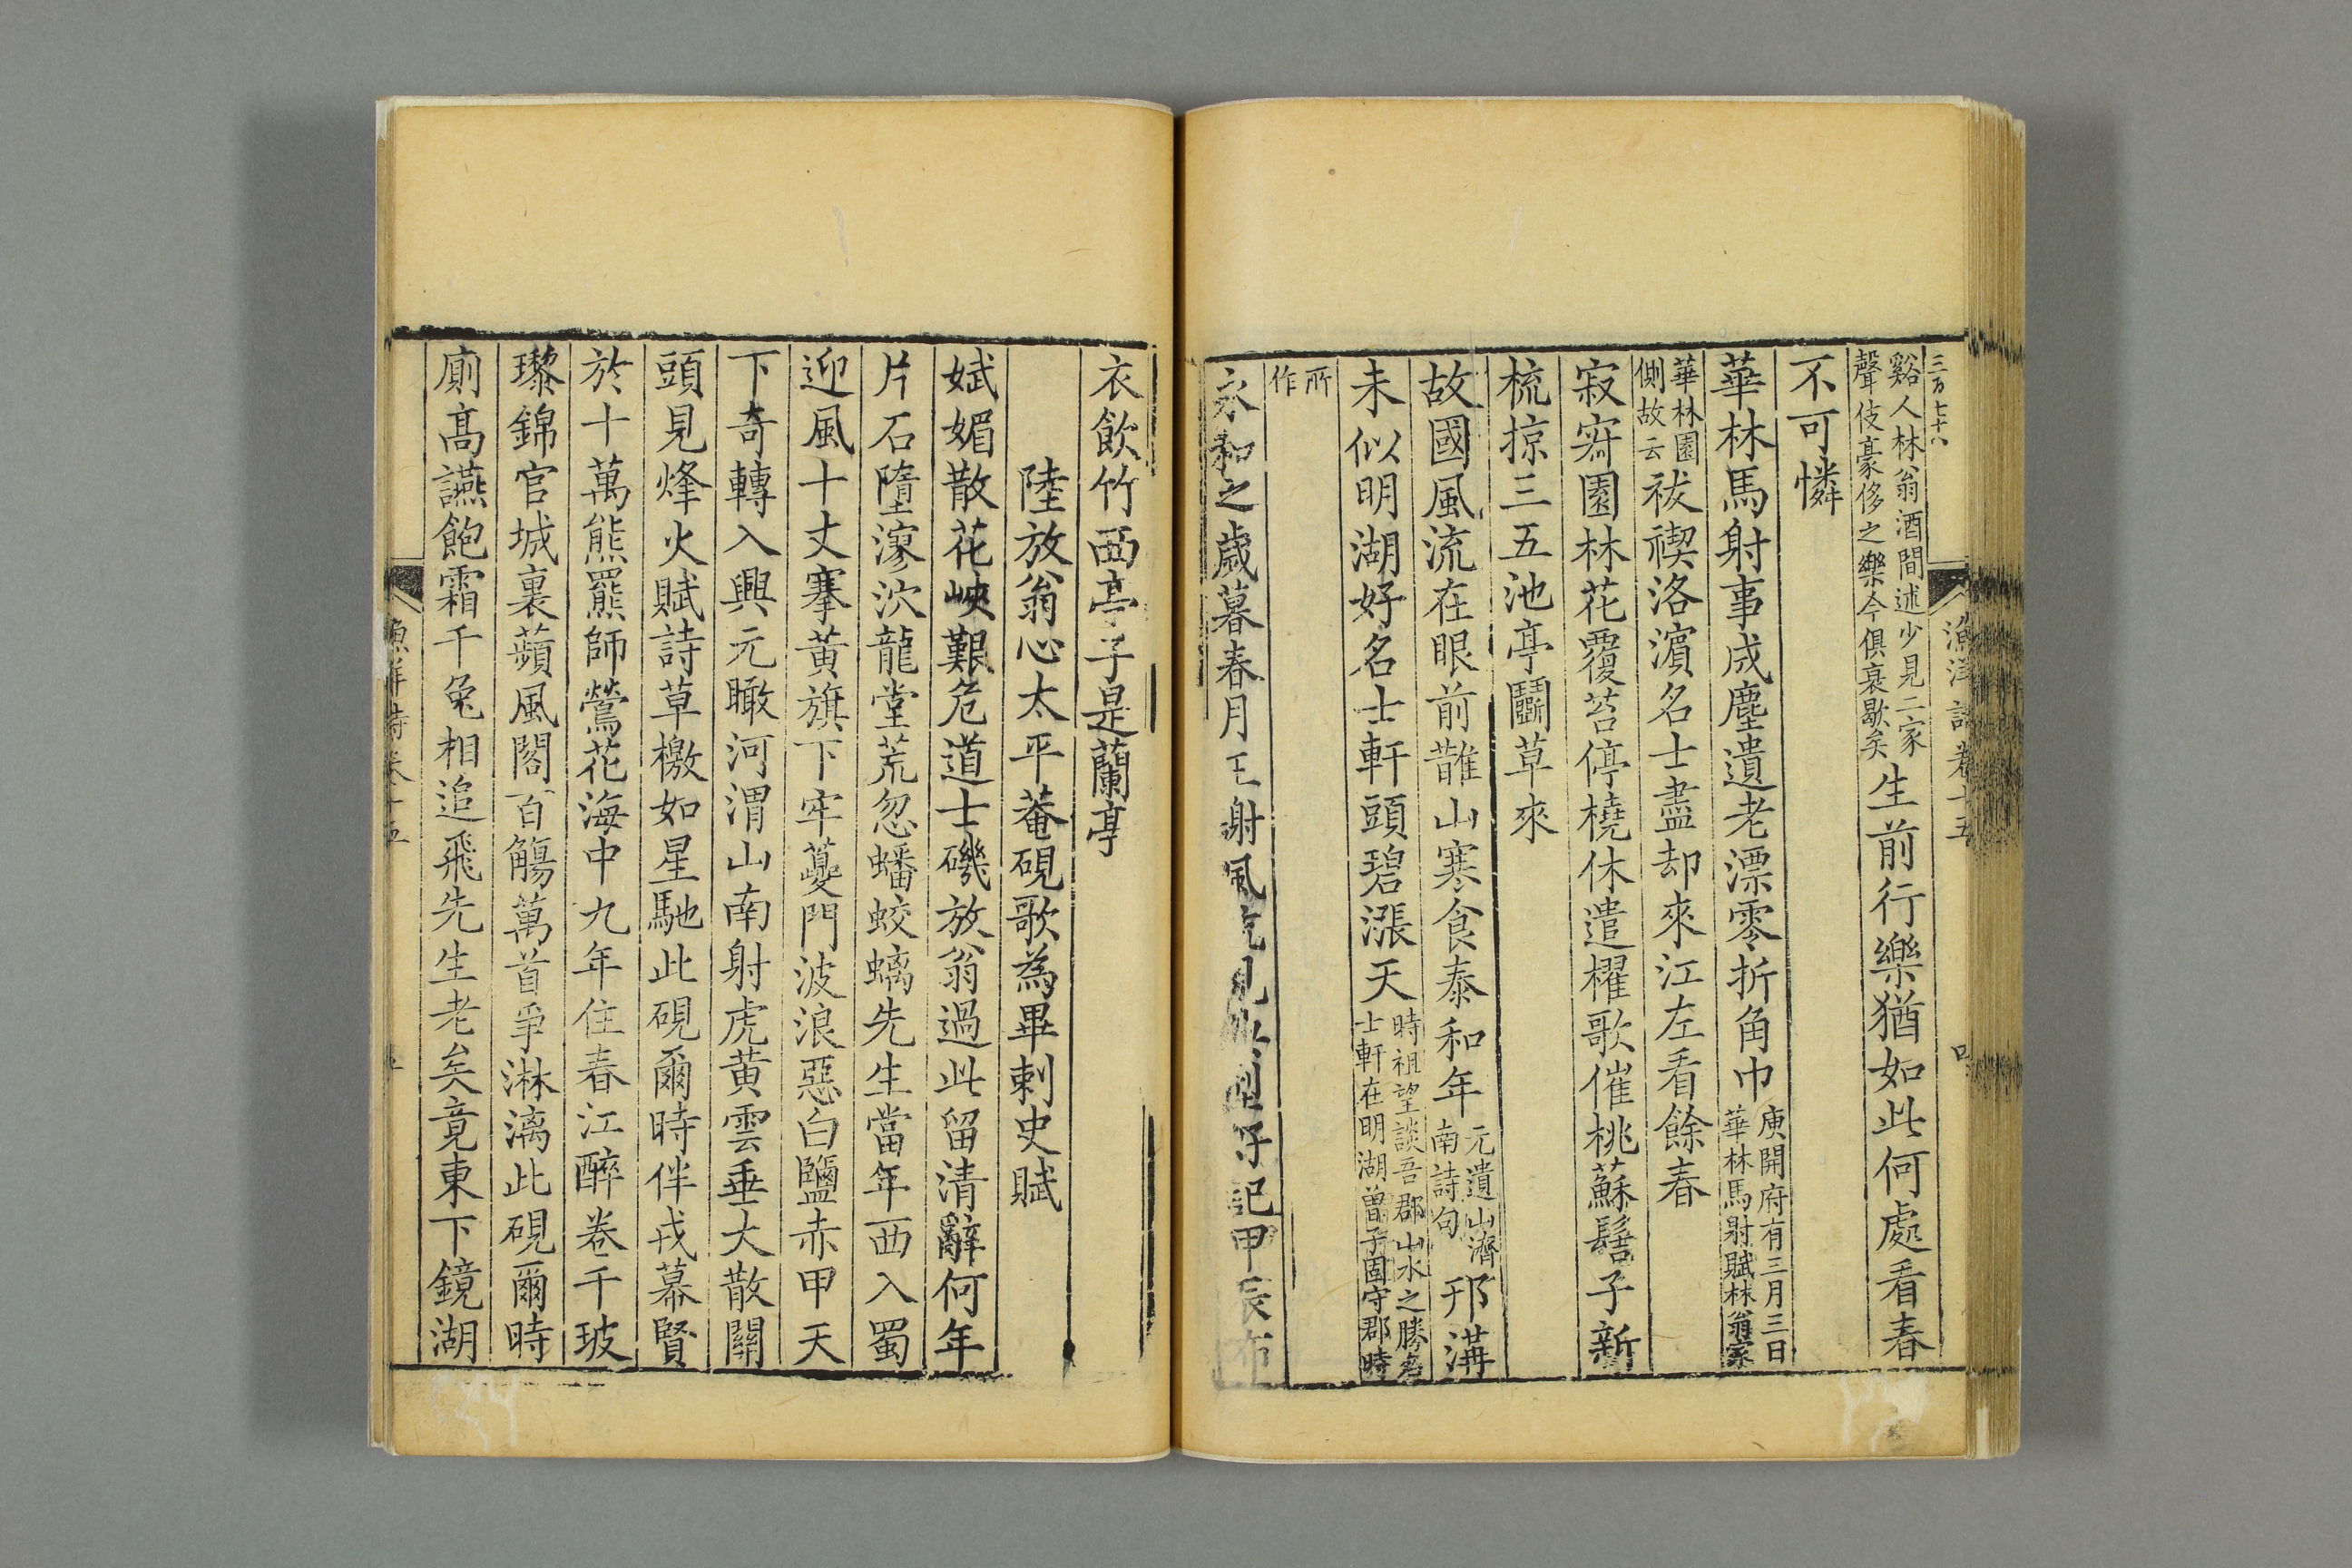 三百七十八
漁洋詩卷十五
谿人林翁酒間述少見二家
聲伎豪侈之樂今俱衰歇矣
生前行樂猶如此何處看春
不可憐
華林馬射事成塵遺老漂零折角巾
庾開府有三月三日
華林馬射賦林翁家
華林園
側故云
祓禊洛濱名士盡却來江左看餘春
寂寞園林花覆苔停橈休遣櫂歌催桃蘇髻子新
梳掠三五池亭鬭草來
故國風流在眼前鵲山寒食泰和年
元遺山濟
南詩句
邗溝
未似明湖好名士軒頭碧漲天
時祖望談吾郡山水之勝名
士軒在明湖曾子固守郡時
所
作
永和之歲暮春月王謝風
記甲辰
衣飲竹西亭子是蘭亭
陸放翁心太平菴硯歌為畢刺史賦
娬媚散花峽艱危道士磯放翁過此留清辭何年
片石墮漻泬龍堂荒忽蟠蛟螭先生當年西入蜀
迎風十丈搴黃旗下牢夔門波浪惡白鹽赤甲天
下奇轉入興元瞰河渭山南射虎黃雲垂大散關
頭見烽火賦詩草檄如星馳此硯爾時伴戎幕賢
於十萬熊羆師鶯花海中九年住春江醉卷千玻
瓈錦官城裏蘋風閣百觴萬首爭淋漓此硯爾時
廁高讌飽霜千兔相追飛先生老矣竟東下鏡湖
卷十五